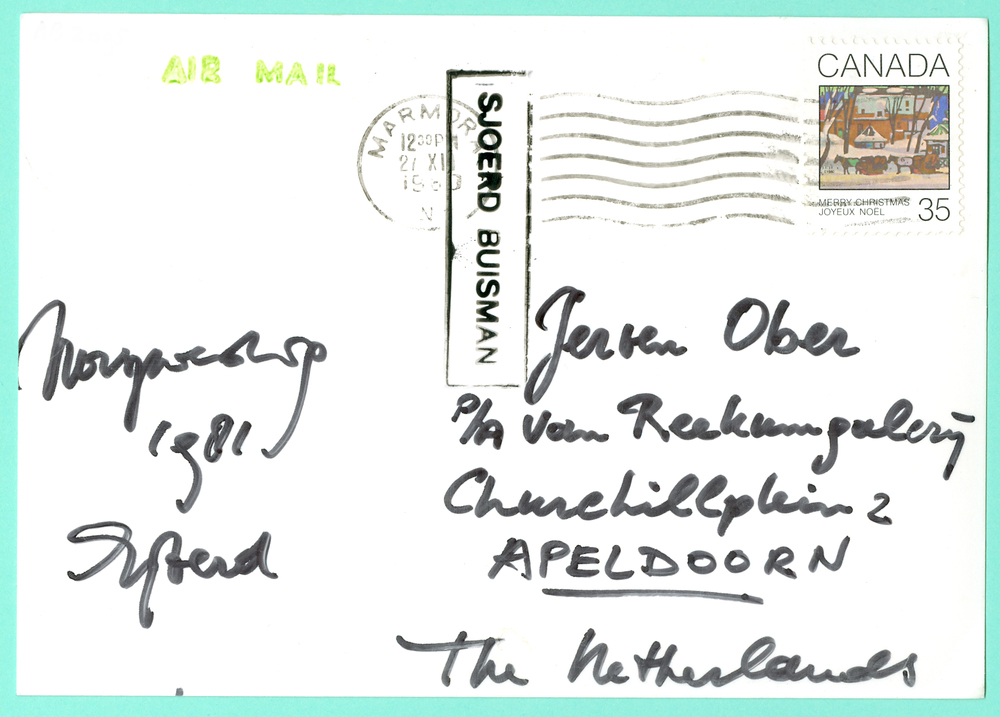 AIR MAIL
CANADA
MERRY CHRISTMAS
JOYEUX NOËL
35
MARMORA
12 30 PM
27 XI
SJOERD BUISMAN
1981
Sjoerd
Jeroen Ober
P/A Van Reekumgalery
Churchillplein 2
APELDOORN
The Netherlands